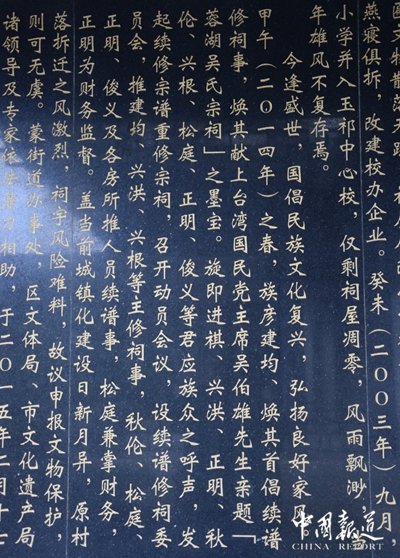 文物散
燕寝俱拆，改建校办企业。癸未（二〇〇三年）九月，
小学并入玉祁中心校，仅剩祠屋凋零，风雨飘渺
年雄风不复存焉。
今逢盛世，国倡民族文化复兴，弘扬良好家
甲午（二〇一四年）之春，族彦建均、焕其首倡续谱
修祠事，焕其献上台湾国民党主席吴伯雄先生亲题「
蓉湖吴氏宗祠」之墨宝。旋即进祺、兴洪、正明、秋
伦、兴根、松庭、正明、俊义等君应族众之呼声，发
起续修宗谱重修宗祠，召开动员会议，设续谱修祠委
员会，推建均、兴洪、兴根等主修祠事，秋伦、松庭、
正明、俊义及各房所推人员续谱事，松庭兼掌财务，
正明为财务监督。盖当前城镇化建设日新月异，原村
落拆迁之风激烈，祠宇风险难料，故议申报文物保护，
则可无虞。蒙街道办事处、区文体局、市文化遗产局
诸领导及专家力相助，于二〇一五年二月十七
中国报道
CHINA REPORT